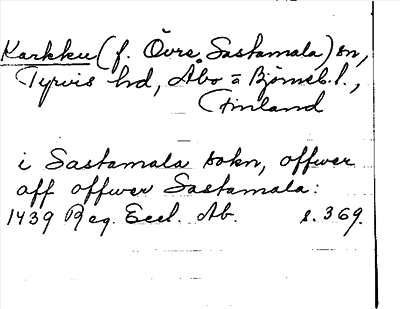 Karkku (f. Övre Sastamala) sn,
Tyrvis hd, Åbo o Björneb. l.,
Finland
i Sastamala sokn, offwer
aff offwer Sastamala:
1439 Reg. Eccl. Ab. s. 369.